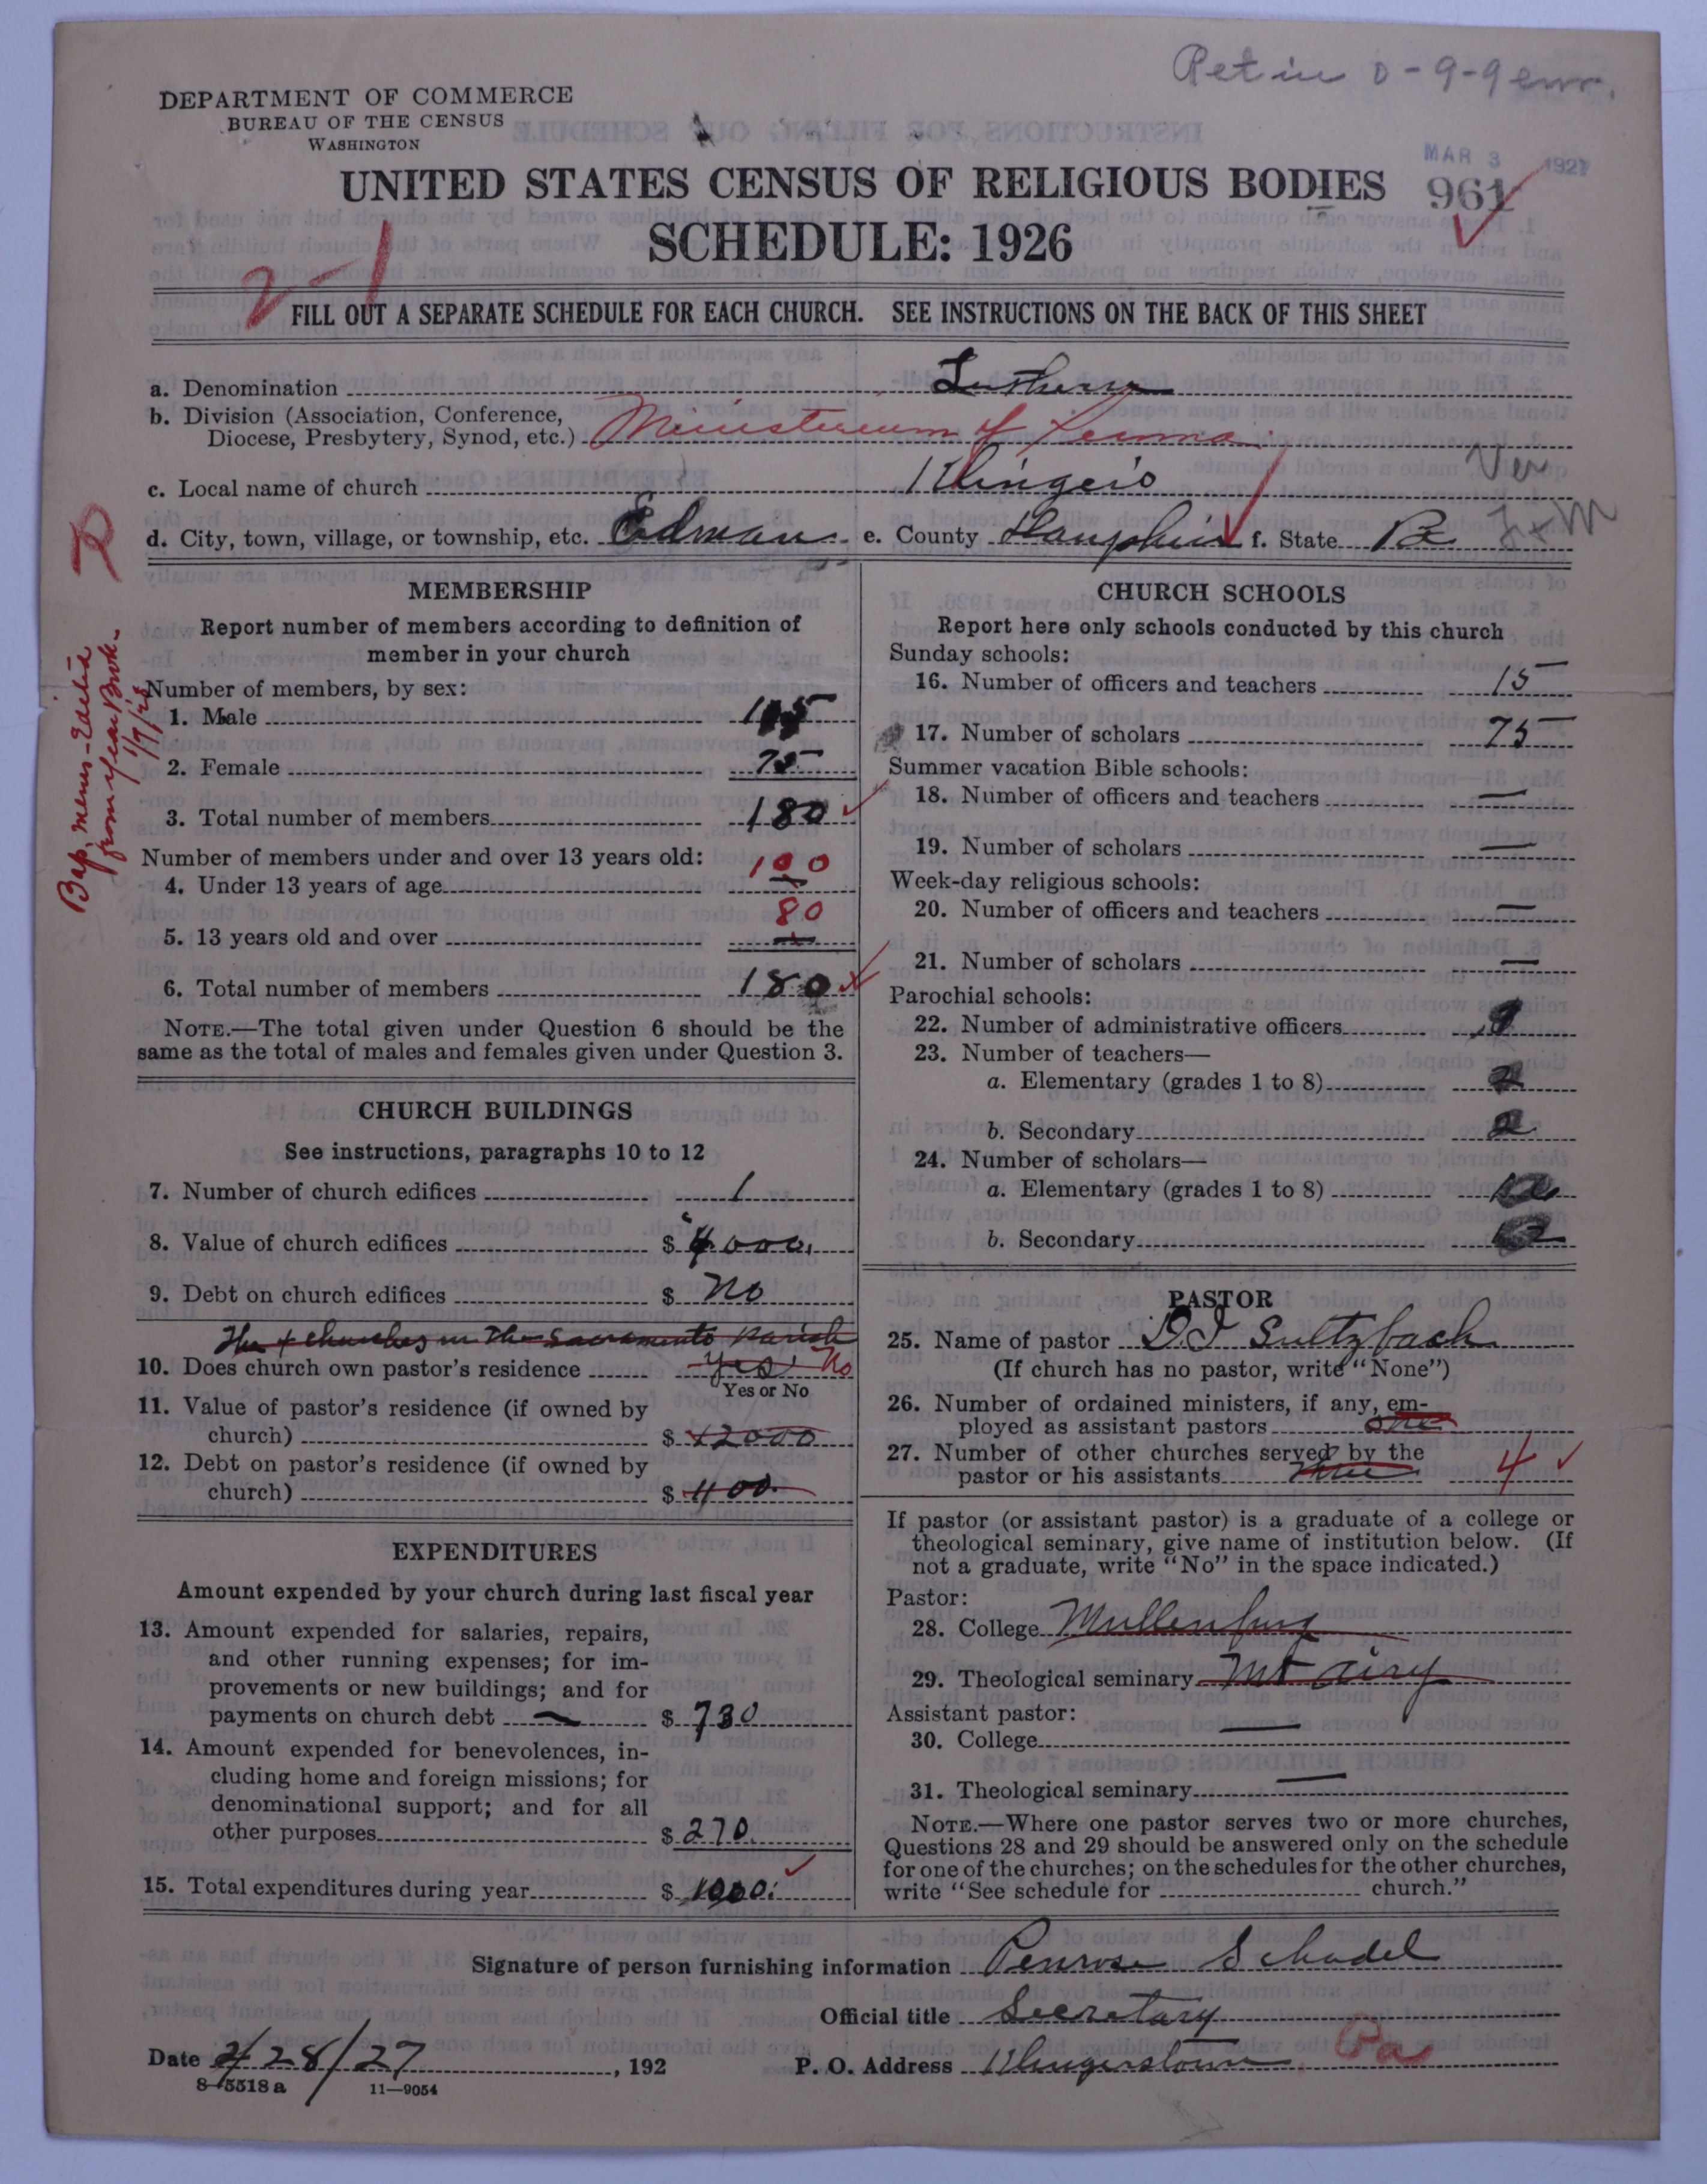 Ret in 0-9-9
DEPARTMENT OF COMMERCE
BUREAU OF THE CENSUS
WASHINGTON
MAR 3 1927
UNITED STATES CENSUS OF RELIGIOUS BODIES
961
SCHEDULE: 1926
2-1
FILL OUT A SEPARATE SCHEDULE FOR EACH CHURCH. SEE INSTRUCTIONS ON THE BACK OF THIS SHEET
a. Denomination Lutheran
b. Division (Association, Conference,
Diocese, Presbytery, Synod, etc.) Ministerium of Penna.
c. Local name of church Klinger's
Ver
d. City, town, village, or township, etc. Edman e. County Dauphin f. State Pa
Bap. mems. Edited
from Year Book-
1/9/28
MEMBERSHIP
Report number of members according to definition of
member in your church
Number of members, by sex:
1. Male 105
2. Female 75
3. Total number of members 180
Number of members under and over 13 years old:
4. Under 13 years of age 100
5. 13 years old and over 80
6. Total number of members 180
NOTE.—The total given under Question 6 should be the
same as the total of males and females given under Question 3.
CHURCH BUILDINGS
See instructions, paragraphs 10 to 12
7. Number of church edifices 1
8. Value of church edifices $ 4000.
9. Debt on church edifices $ No
The 4 churches in the Sacramento Parish
10. Does church own pastor's residence Yes No
Yes or No
11. Value of pastor's residence (if owned by
church) $ 12000
12. Debt on pastor's residence (if owned by
church) $ 1100.
EXPENDITURES
Amount expended by your church during last fiscal year
13. Amount expended for salaries, repairs,
and other running expenses; for im-
provements or new buildings; and for
payments on church debt — $ 730
14. Amount expended for benevolences, in-
cluding home and foreign missions; for
denominational support; and for all
other purposes $ 270.
15. Total expenditures during year $ 1000.
CHURCH SCHOOLS
Report here only schools conducted by this church
Sunday schools:
16. Number of officers and teachers 15
17. Number of scholars 75
Summer vacation Bible schools:
18. Number of officers and teachers —
19. Number of scholars —
Week-day religious schools:
20. Number of officers and teachers —
21. Number of scholars —
Parochial schools:
22. Number of administrative officers
23. Number of teachers—
a. Elementary (grades 1 to 8)
b. Secondary
24. Number of scholars—
a. Elementary (grades 1 to 8)
b. Secondary
PASTOR
25. Name of pastor D. I. Sultzbach
(If church has no pastor, write "None")
26. Number of ordained ministers, if any, em-
ployed as assistant pastors one
27. Number of other churches served by the
pastor or his assistants three 4
If pastor (or assistant pastor) is a graduate of a college or
theological seminary, give name of institution below. (If
not a graduate, write "No" in the space indicated.)
Pastor:
28. College Mullenburg
29. Theological seminary Mt airy
Assistant pastor:
30. College —
31. Theological seminary —
NOTE.—Where one pastor serves two or more churches,
Questions 28 and 29 should be answered only on the schedule
for one of the churches; on the schedules for the other churches,
write "See schedule for church."
Signature of person furnishing information Penrose Schadel
Official title Secretary
Date 2/28/27, 192 P. O. Address Klingerstown Pa
8-5518 a 11—9054